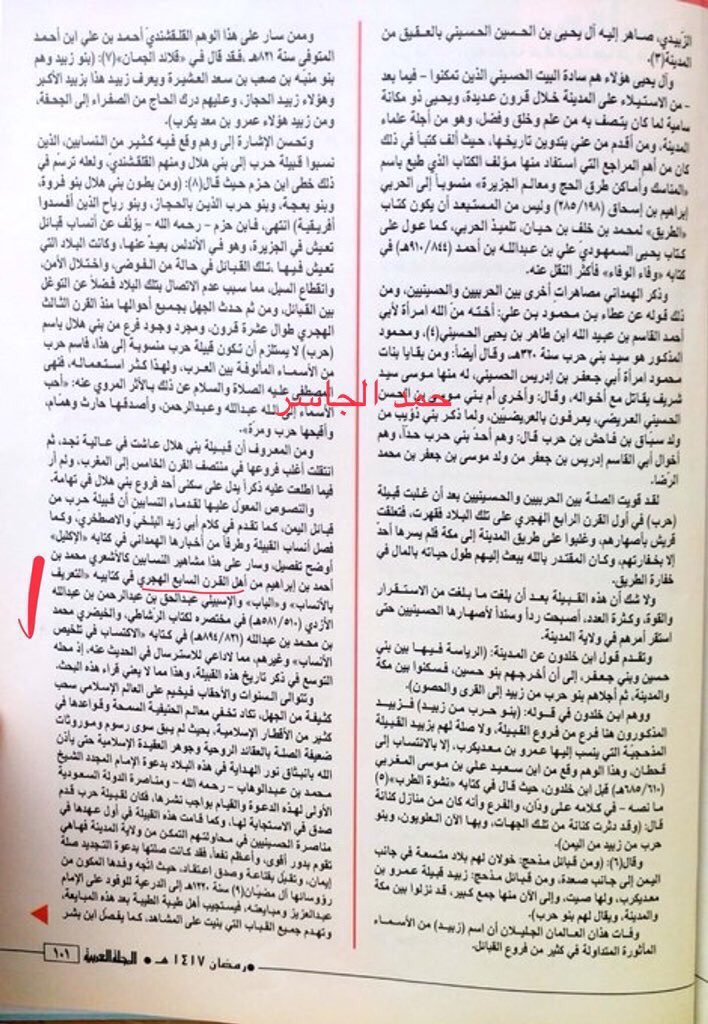 الزّبيدي، صاهر إليه آل يحيى بن الحسين الحسيني بالعقيق من
المدينة(٣).
وآل يحيى هؤلاء هم سادة البيت الحسيني الذين تمكنوا – فيما بعد
– من الاستيلاء على المدينة خلال قرون عديدة، ويحيى ذو مكانة
سامية لما كان يتصف به من علم وخلق وفضل، وهو من أجلة علماء
المدينة، ومن أقدم من عني بتدوين تاريخها، حيث ألف كتباً في ذلك
كان من أهم المراجع التي استفاد منها مؤلف الكتاب الذي طبع باسم
«المناسك وأماكن طرق الحج ومعالم الجزيرة» منسوباً إلى الحربي
إبراهيم بن إسحاق (٢٨٥/١٩٨) وليس من المستبعد أن يكون كتاب
«الطريق» لمحمد بن خلف بن حيان، تلميذ الحربي، كما عول على
كتاب يحيى السمهوديّ علي بن عبدالله بن أحمد (٩١٠/٨٤٤هـ) في
كتابه «وفاء الوفاء» فأكثر النقل عنه.
وذكر الهمداني مصاهرات أخرى بين الحربيين والحسينيين، ومن
ذلك قوله عن عطاء بن محمود بن علي: أخته منّ الله امرأة لأبي
أحمد القاسم بن عبيد الله ابن طاهر بن يحيى الحسيني(٤). ومحمود
المذكور هو سيد بني حرب سنة ٣٢٠هـ، وقال أيضاً: ومن بقايا بنات
محمود امرأة أبي جعفر بن إدريس الحسيني، له منها موسى سيد
شريف يقاتل مع أخواله، وقال: وأخرى أم بني موسى بن الحسن
الحسيني العريضي، يعرفون بالعريضيين، ولما ذكر بني ذؤيب من
ولد سبّاق بن فاحش بن حرب قال: وهم أحدّ بني حرب حدّاً، وهم
أخوال أبي القاسم إدريس بن جعفر من ولد موسى بن جعفر بن محمد
الرّضا.
لقد قويت الصلة بين الحربيين والحسينيين بعد أن غلبت قبيلة
(حرب) في أول القرن الرابع الهجري على تلك البلاد فقهرت، فتعلقت
قريش بأصهارهم، وغلبوا على طريق المدينة إلى مكة فلم يسرها أحدٌ
إلا بخفارتهم، وكان المقتدر بالله يبعث إليهم طول حياته بالمال في
خفارة الطريق.
ولا شك أن هذه القبيلة بعد أن بلغت ما بلغت من الاستقرار
والقوة، وكثرة العدد، أصبحت ردءاً وسنداً لأصهارها الحسينيين حتى
استقر أمرهم في ولاية المدينة.
وتقدم قول ابن خلدون عن المدينة: (الرياسة فيها بين بني
حسين وبني جعفر، إلى أن أخرجهم بنو حسين، فسكنوا بين مكة
والمدينة، ثم أجلاهم بنو حرب من زبيد إلى القرى والحصون).
ووهم ابن خلدون في قوله: (بنو حرب من زبيد) فـزبيد
المذكورون هنا فرع من فروع القبيلة، ولا صلة لهم بزبيد القبيلة
المذحجيّة التي ينسب إليها عمرو بن معديكرب، إلا بالانتساب إلى
قحطان، وهذا الوهم وقع من ابن سعيد علي بن موسى المغربي
(٦٨٥/٦١٠هـ) قبل ابن خلدون، حيث قال في كتابه «نشوة الطرب»(٥)
ما نصه – في كلامه على ودّان، والفرع وأنه كان من منازل كنانة
قال: (وقد دثرت كنانة من تلك الجهات، وبها الآن العلويون، وبنو
حرب من زبيد من اليمن).
وقال(٦): (ومن قبائل مذحج: خولان لهم بلاد متسعة في جانب
اليمن إلى جانب صعدة، ومن قبائل مذحج: زبيد قبيلة عمرو بن
معديكرب، ولها صيت، وإلى الآن منها جمع كبير، قد نزلوا بين مكة
والمدينة، ويقال لهم بنو حرب).
وفات هذان العالمان الجليلان أن اسم (زبيد) من الأسماء
المأثورة المتداولة في كثير من فروع القبائل.
وممن سار على هذا الوهم القلقشنديّ أحمد بن علي ابن أحمد
المتوفى سنة ٨٢١هـ، فقد قال في «قلائد الجمان»(٧): (بنو زبيد وهم
بنو منبّه بن صعب بن سعد العشيرة ويعرف زبيد هذا بزبيد الأكبر
وهؤلاء زبيد الحجاز، وعليهم درك الحاج من الصفراء إلى الجحفة،
ومن زبيد هؤلاء عمرو بن معد يكرب).
وتحسن الإشارة إلى وهم وقع فيه كثير من النسابين، الذين
نسبوا قبيلة حرب إلى بني هلال ومنهم القلقشندي، ولعله ترسّم في
ذلك خطى ابن حزم حيث قال(٨): (ومن بطون بني هلال بنو فروة،
وبنو بعجة، وبنو حرب الذين بالحجاز، وبنو رياح الذين أفسدوا
أفريقية) انتهى، فابن حزم – رحمه الله – يؤلّف عن أنساب قبائل
تعيش في الجزيرة، وهو في الأندلس بعيدٌ عنها، وكانت البلاد التي
تعيش فيها تلك القبائل في حالة من الفوضى، واختلال الأمن،
وانقطاع السبل، مما سبب عدم الاتصال بتلك البلاد فضلاً عن التوغل
بين القبائل، ومن ثم حدث الجهل بجميع أحوالها منذ القرن الثالث
الهجري طوال عشرة قرون، ومجرد وجود فرع من بني هلال باسم
(حرب) لا يستلزم أن تكون قبيلة حرب منسوبة إلى هذا، فاسم حرب
من الأسماء المألوفة بين العرب، ولهذا كثر استعماله، فنهى
المصطفى عليه الصلاة والسلام عن ذلك بالأثر المروي عنه: «أحب
الأسماء إلى الله عبدالله وعبدالرحمن، وأصدقها حارث وهمّام،
وأقبحها حرب ومرة».
حمد الجاسر
ومن المعروف أن قبيلة بني هلال عاشت في عالية نجد، ثم
انتقلت أغلب فروعها في منتصف القرن الخامس إلى المغرب، ولم أر
فيما اطلعت عليه ذكراً يدل على سكنى أحد فروع بني هلال في تهامة.
والنصوص المعول عليها لقدماء النسابين أن قبيلة حرب من
قبائل اليمن، كما تقدم في كلام أبي زيد البلخي والاصطخري، وكما
فصل أنساب القبيلة وطرفاً من أخبارها الهمداني في كتابه «الإكليل»
أوضح تفصيل، وسار على هذا مشاهير النسابين كالأشعري محمد بن
أحمد بن إبراهيم من أهل القرن السابع الهجري في كتابيه «التعريف
بالأنساب» و«اللباب» والإسبيلي عبدالحق بن عبدالرحمن بن عبدالله
الأزدي (٥٨١/٥١٠هـ) في مختصره لكتاب الرشاطي، والخيضري محمد
بن محمد بن عبدالله (٨٩٤/٨٢١هـ) في كتابه «الاكتساب في تلخيص
الأنساب» وغيرهم، مما لاداعي للاسترسال في الحديث عنه، إذ محله
التوسع في ذكر تاريخ هذه القبيلة، وهذا مما لا يعني قراء هذه البحث.
وتتوالى السنوات والأحقاب فيخيم على العالم الإسلامي سحب
كثيفة من الجهل، تكاد تخفي معالم الحنيفية السمحة وقواعدها في
كثير من الأقطار الإسلامية، بحيث لم يبق سوى رسوم وموروثات
ضعيفة الصلة بالعقائد الروحية وجوهر العقيدة الإسلامية حتى يأذن
الله بانبثاق نور الهداية في هذه البلاد بدعوة الإمام المجدد الشيخ
محمد بن عبدالوهاب – رحمه الله – ومناصرة الدولة السعودية
الأولى لهذه الدعوة والقيام بواجب نشرها، فكان لقبيلة حرب قدم
صدق في الاستجابة لها، وكما قامت هذه القبيلة في أول عهدها في
مناصرة الحسينيين في محاولتهم التمكن من ولاية المدينة فهاهي
تقوم بدور أقوى، وأعظم نفعاً، فقد كانت صلتها بدعوة التجديد صلة
إيمان، وتقبل بقناعة وصدق اعتقاد، حيث اتجه وفدها المكون من
رؤوسائها آل مضيّان(٩) سنة ١٢٢٠هـ إلى الدرعية للوفود على الإمام
عبدالعزيز ومبايعته، فيستجيب أهل طيبة الطيبة بعد هذه المبايعة،
وتهدم جميع القباب التي بنيت على المشاهد، كما يفصل ابن بشر
رمضان ١٤١٧ هـ • المجلة العربية ١٠١